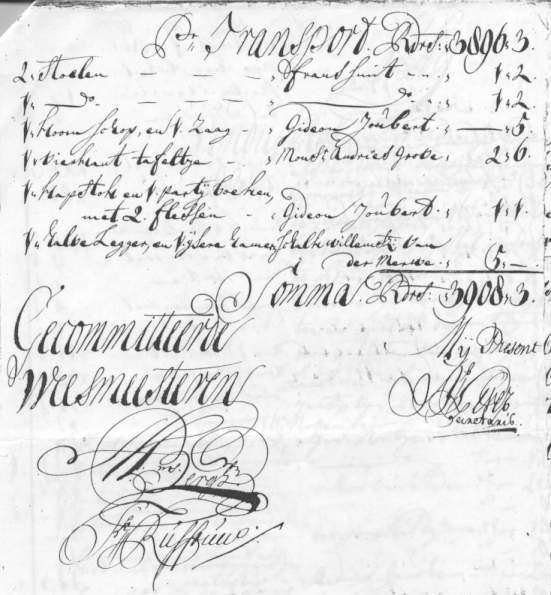 Pr. Transport Rdrs: 3896: 3.
2. Stoelen — , Frans Smit - - , 1, 2.
1, — do. — — — , — do. — , 1, 2.
1, Koorn Schop, en 1. Zaag — , Gideon Joubert , — 5.
1, vierkant tafeltje - , Monsr. Andries Grove , 2, 6.
1, Kapstok en 1. party boeken
met 2. flessen - , Gideon Joubert , 1, 1.
1, halve Legger, en Ysere Schalk Willemsz. van
der Merwe , 5, —
Somma Rdrs: 3908, 3.
Gecommitteerde
Weesmeesteren
Mij Present
Secretaris.